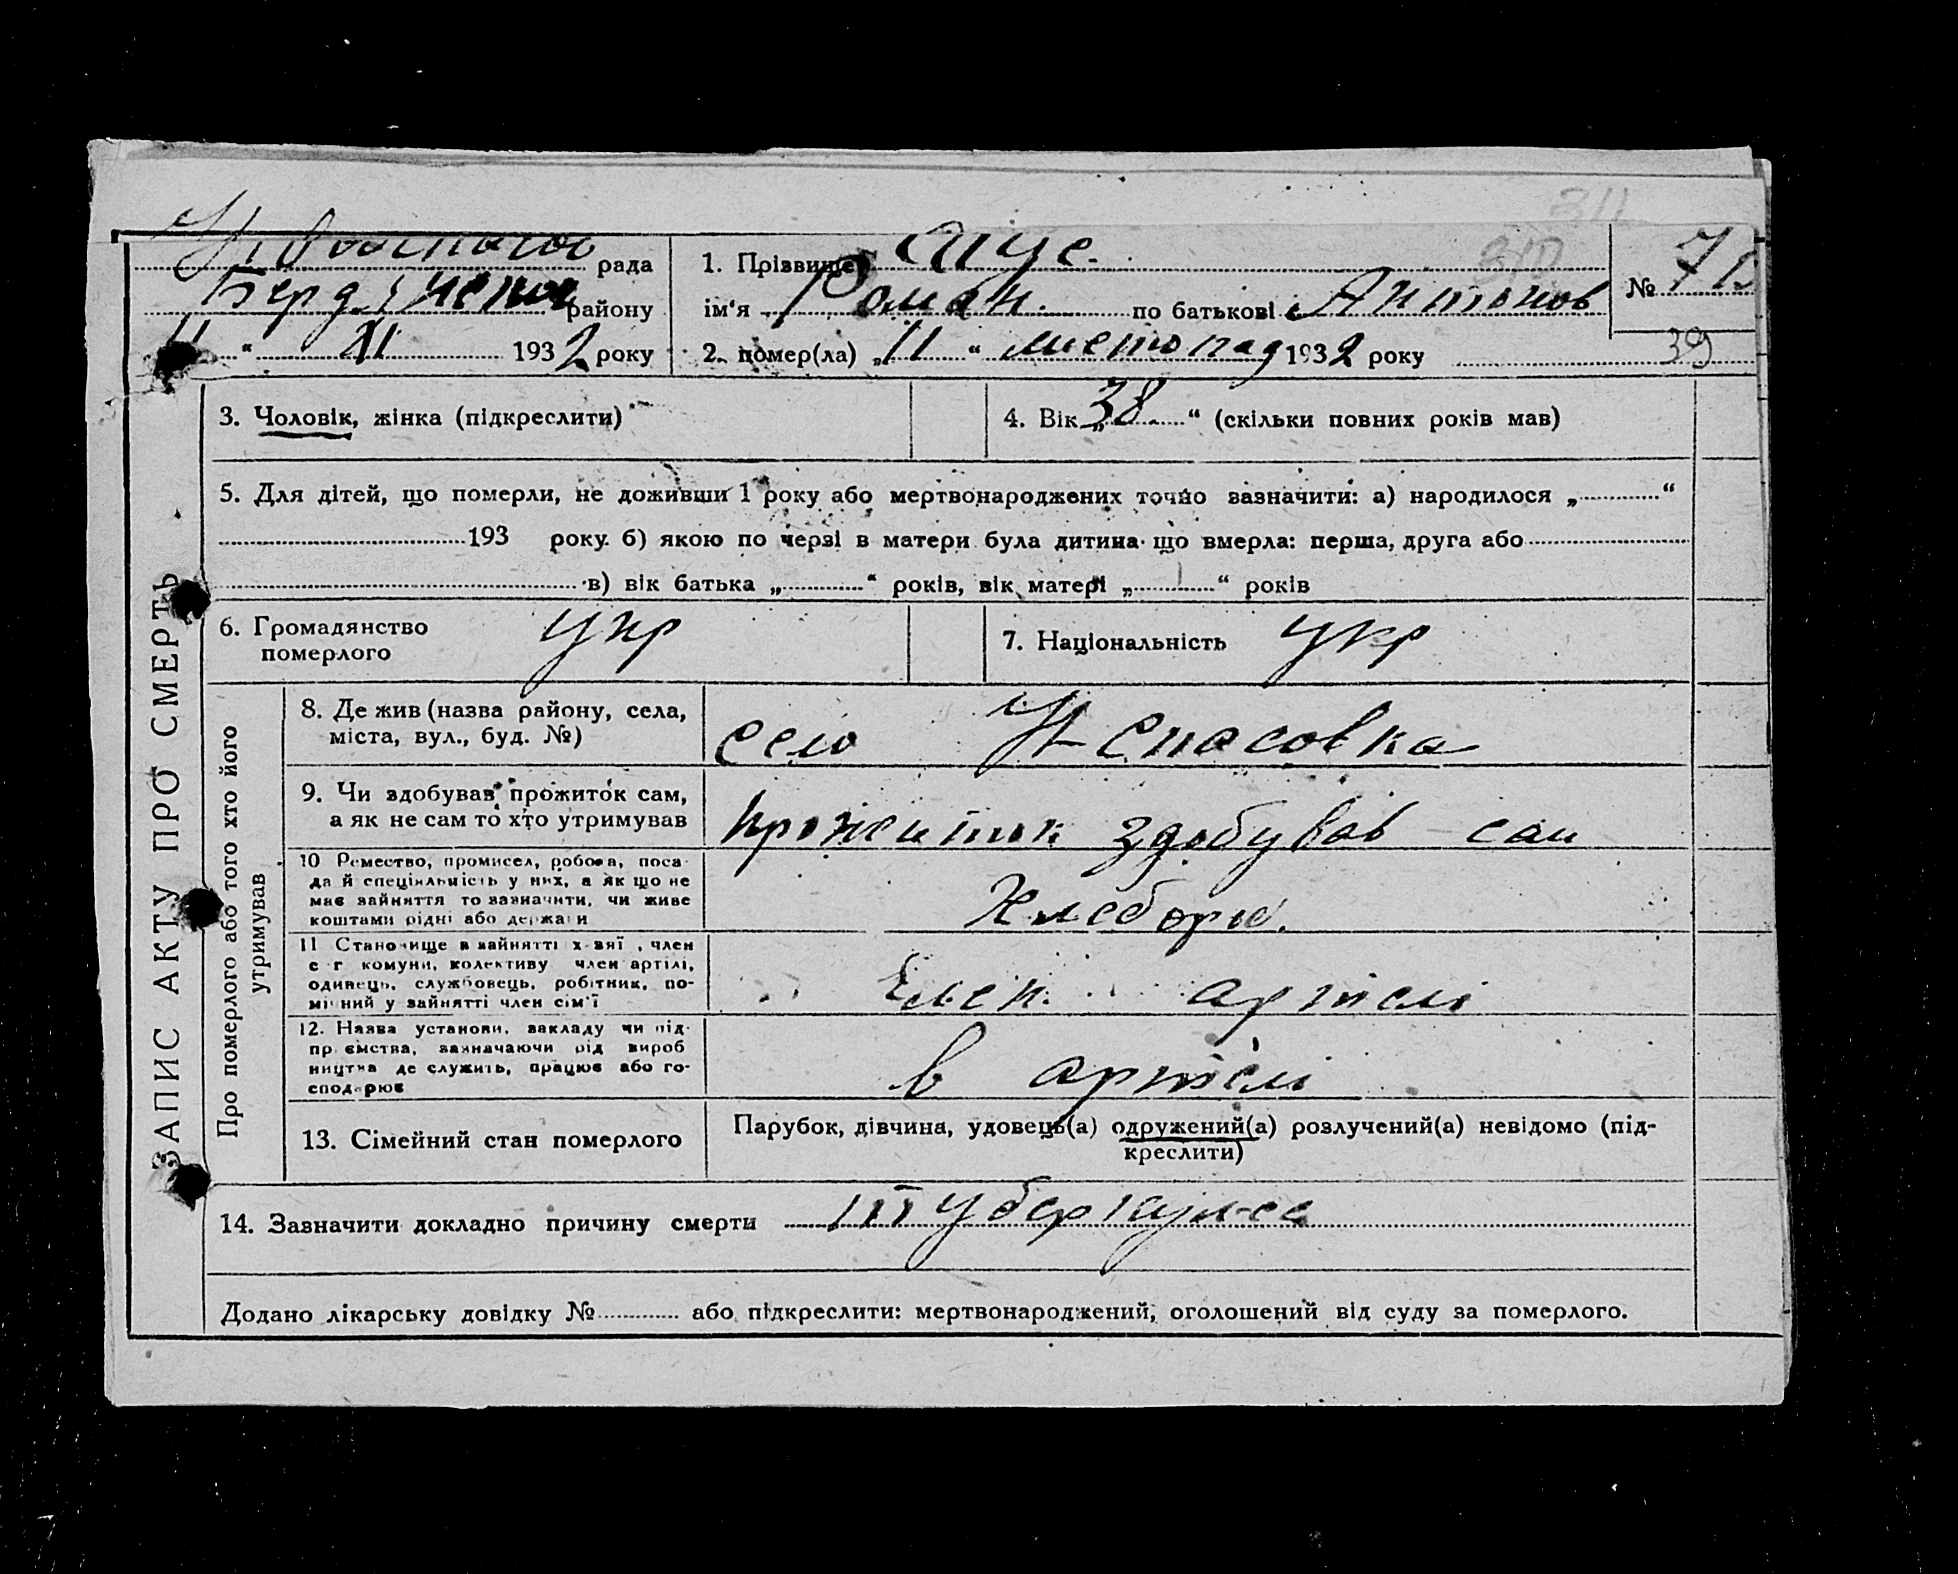 311
310
рада
1. Прізвище
№ 7
району
ім'я Роман по батькові Антонов
11 " XI 1932 року
2. помер(ла) „11 " листопад 1932 року
39
3. Чоловік, жінка (підкреслити)
4. Вік „38 " (скільки повних років мав)
5. Для дітей, що померли, не доживши 1 року або мертвонароджених точно зазначити: а) народилося „ "
193 року. б) якою по черзі в матери була дитина що вмерла: перша, друга або
в) вік батька „ " років, вік матері „ " років
6. Громадянство
померлого
укр
7. Національність укр
ЗАПИС АКТУ ПРО СМЕРТЬ
Про померлого або того хто його
утримував
8. Де жив (назва району, села,
міста, вул., буд. №)
село Н-Спасовка
9. Чи здобував прожиток сам,
а як не сам то хто утримував
прожиток здобував сам
10 Ремество, промисел, робота, поса-
да й спеціяльність у них, а як що не
має зайняття то зазначити, чи живе
коштами рідні або держави
Хлебороб.
11 Становище в зайнятті х-зяї , член
с г комуни, колективу член артілі,
одинець, службовець, робітник, по-
мічний у зайнятті член сім'ї
Член артелі
12. Назва установи, закладу чи під-
приємства, зазначаючи рід вироб
ництва де служить, працює або го-
сподарює
в артелі
13. Сімейний стан померлого
Парубок, дівчина, удовець(а) одружений(а) розлучений(а) невідомо (під-
креслити)
14. Зазначити докладно причину смерти туберкульос
Додано лікарську довідку № або підкреслити: мертвонароджений, оголошений від суду за померлого.